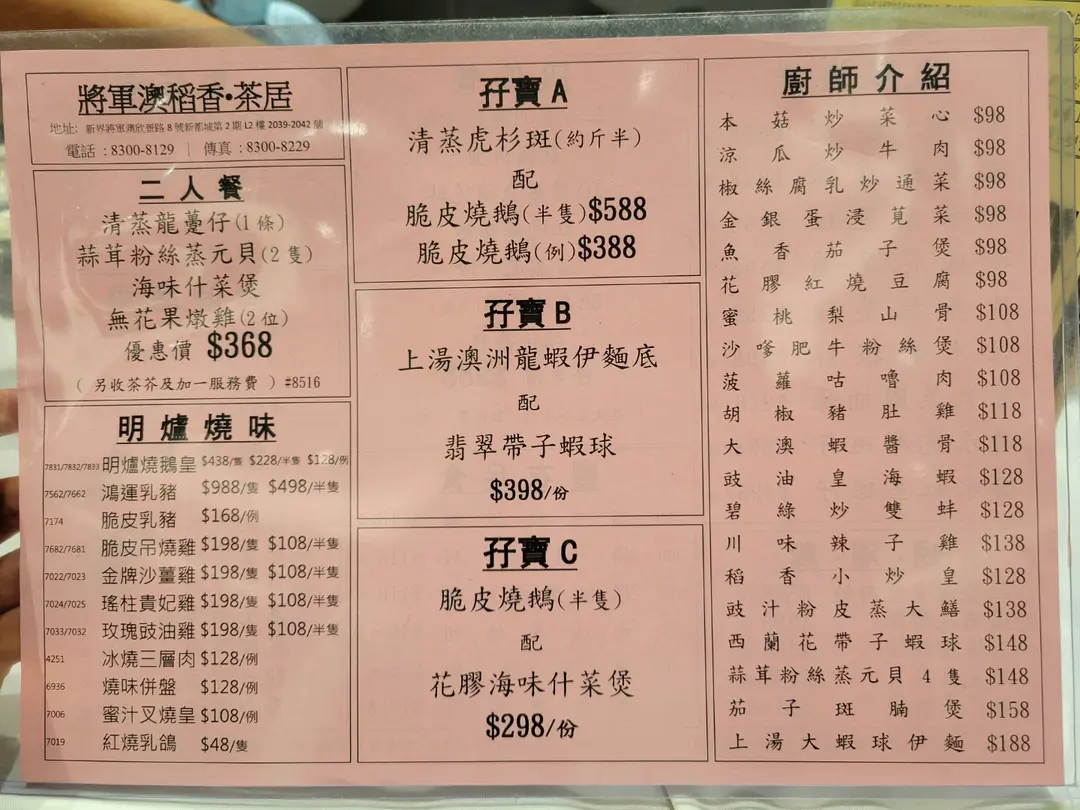 將軍澳稻香•茶居
地址: 新界將軍澳欣景路 8 號新都城第 2 期 L2 樓 2039-2042 舖
電話 : 8300-8129 | 傳真 : 8300-8229
二人餐
清蒸龍躉仔(1 條)
蒜茸粉絲蒸元貝(2 隻)
海味什菜煲
無花果燉雞(2 位)
優惠價 $368
( 另收茶芥及加一服務費 ) #8516
明爐燒味
7831/7832/7833 明爐燒鵝皇 $438/隻 $228/半隻 $128/例
7562/7662 鴻運乳豬 $988/隻 $498/半隻
7174 脆皮乳豬 $168/例
7682/7681 脆皮吊燒雞 $198/隻 $108/半隻
7022/7023 金牌沙薑雞 $198/隻 $108/半隻
7024/7025 瑤柱貴妃雞 $198/隻 $108/半隻
7033/7032 玫瑰豉油雞 $198/隻 $108/半隻
4251 冰燒三層肉 $128/例
6936 燒味併盤 $128/例
7006 蜜汁叉燒皇 $108/例
7019 紅燒乳鴿 $48/隻
孖寶 A
清蒸虎杉斑(約斤半)
配
脆皮燒鵝(半隻)$588
脆皮燒鵝(例)$388
孖寶 B
上湯澳洲龍蝦伊麵底
配
翡翠帶子蝦球
$398/份
孖寶 C
脆皮燒鵝(半隻)
配
花膠海味什菜煲
$298/份
廚師介紹
本菇炒菜心 $98
涼瓜炒牛肉 $98
椒絲腐乳炒通菜 $98
金銀蛋浸莧菜 $98
魚香茄子煲 $98
花膠紅燒豆腐 $98
蜜桃梨山骨 $108
沙嗲肥牛粉絲煲 $108
菠蘿咕嚕肉 $108
胡椒豬肚雞 $118
大澳蝦醬骨 $118
豉油皇海蝦 $128
碧綠炒雙蚌 $128
川味辣子雞 $138
稻香小炒皇 $128
豉汁粉皮蒸大鱔 $138
西蘭花帶子蝦球 $148
蒜茸粉絲蒸元貝 4 隻 $148
茄子斑腩煲 $158
上湯大蝦球伊麵 $188